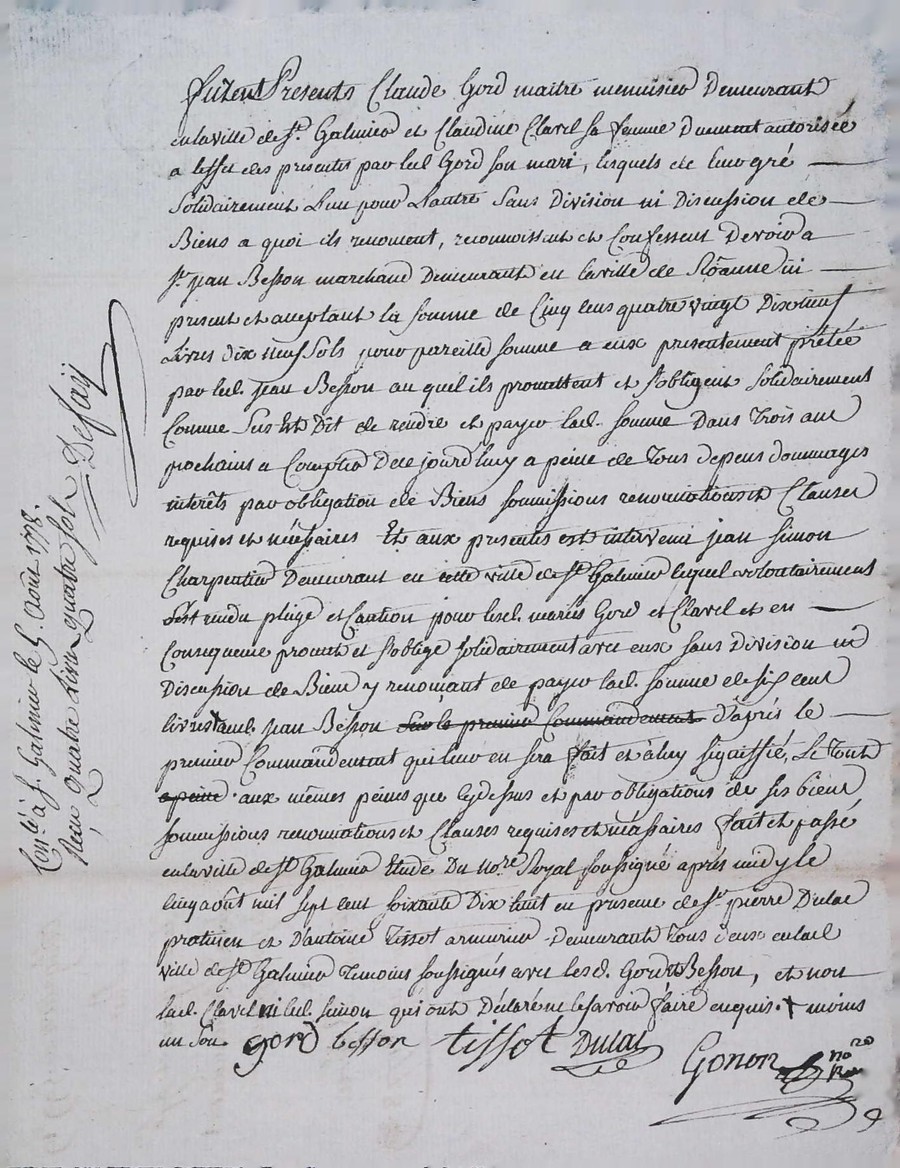 furent Presents Claude Gord maitre menuisier Demeurant
en la ville de St. Galmier et Claudine Clavel sa femme Duement autorisée
a leffet des presentes par led. Gord son mari, lesquels de leur gré
Solidairement Lun pour Lautre Sans Division ni Discussion de
Biens a quoi ils renoncent, reconnoissent et Confessent Devoir a
Sr. jean Besson marchand Demeurant en la ville de Röanne ici
present et acceptant la somme de Cinq cens quatre vingt Dix neuf
Livres dix neuf Sols pour pareille somme a eux presentement prêtée
par led. jean Besson au quel ils promettent et s'obligent solidairement
Comme Sus Est Dit de rendre et payer lad. somme Dans Trois ans
prochains a Compter De ce jourd'huy a peine de Tous depens dommages
interêts par obligation de Biens soumissions renonciations et Clauses
requises et nécessaires Et aux presentes est intervenu jean Simon
Charpentier Demeurant en cette ville de St Galmier lequel volontairement
s'est rendu plege et Caution pour lesd. mariés Gord et Clavel et en
Consequence promet et s'oblige solidairement avec eux sans Division ni
Discussion de Biens y renonçant de payer lad. somme de six cent
livres + aud. jean Besson sur le premier Commandement d'après le
premier Commandement qui leur en sera fait et à luy signiffié, Le Tout
a peine aux mêmes peines que cydessus et par obligations de ses biens
soumissions renonciations et Clauses requises et necessaires fait et passé
en la ville de St Galmier Etude Du nore. Royal soussigné aprés midy le
cinq août mil sept cent soixante Dix huit en presence de Sr. pierre Dulac
praticien et D'antoine Tissot armurier Demeurant Tous deux en lad
ville de St Galmier Temoins soussignés avec lesd. Gord et Besson, et non
lad. Clavel ni led. simon qui ont Déclaré ne le savoir faire enquis. + moins
un sou
gord besson tissot Dulac
Gonon
no re
Ral
Conlé à St. Galmier le 5. Août 1778.
Reçu Quatre Livres quatre sols
Defaij